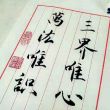 三界唯心
萬法唯識